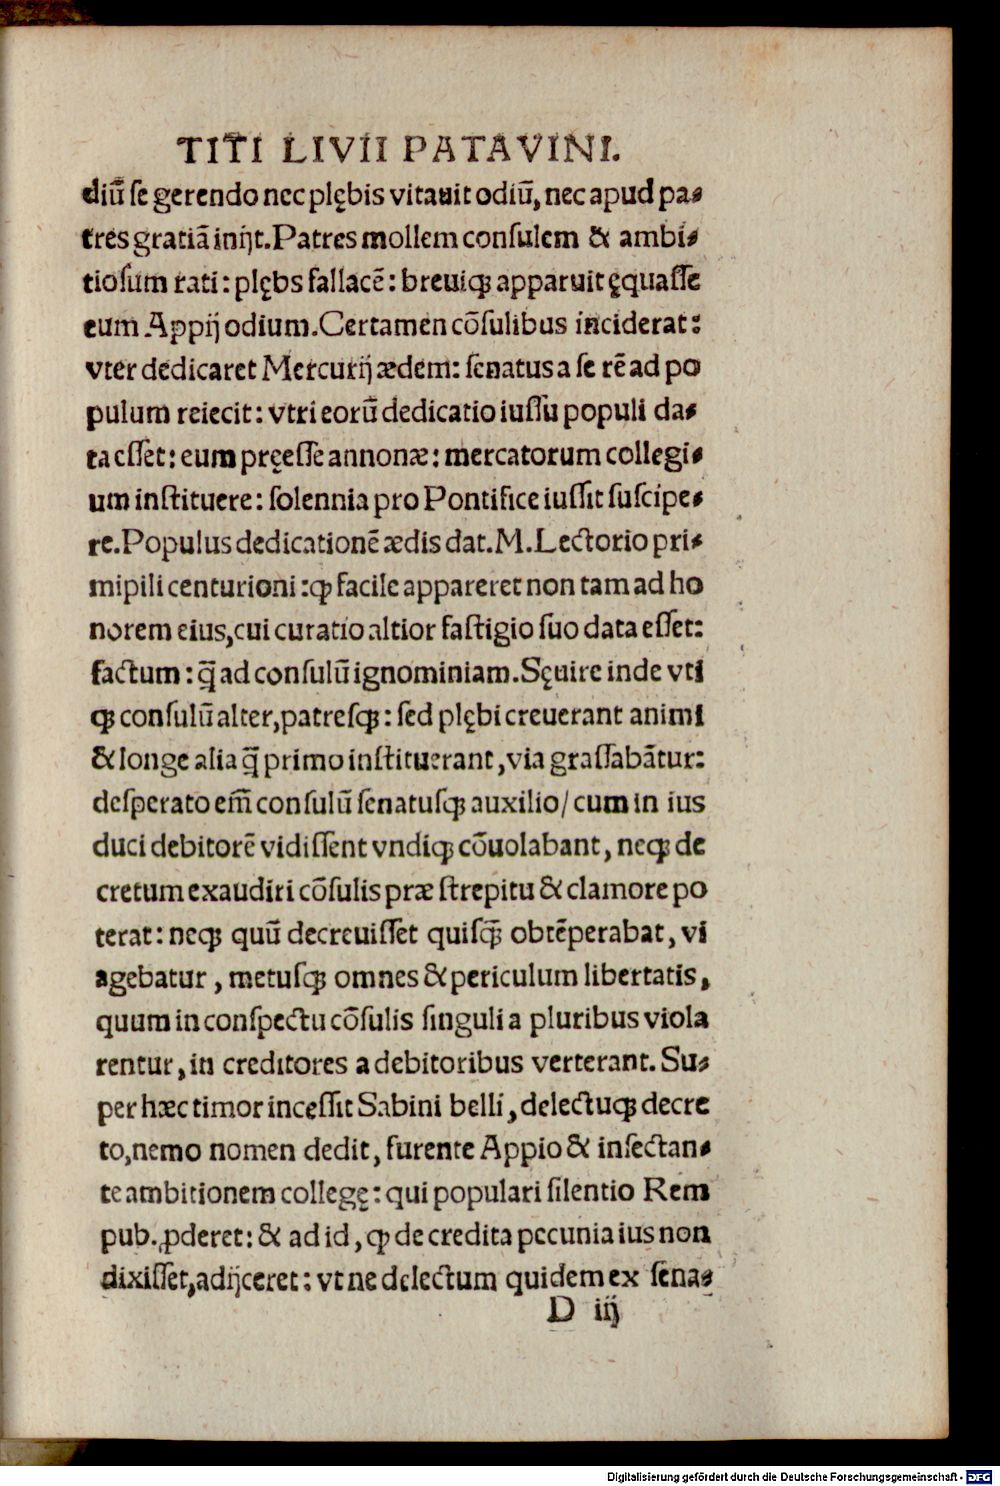 TITI LIVII PATAVINI.
diū se gerendo nec plębis vitauit odiū, nec apud pa-
tres gratiā inijt. Patres mollem consulem & ambi-
tiosum rati: plębs fallacē: breuiqꝫ apparuit ęquasse
eum Appij odium. Certamen cōsulibus inciderat:
vter dedicaret Mercurij ædem: senatus a se rē ad po
pulum reiecit: vtri eorū dedicatio iussu populi da-
ta esset: eum pręesse annonæ: mercatorum collegi-
um instituere: solennia pro Pontifice iussit suscipe-
re. Populus dedicationē ædis dat. M. Lectorio pri-
mipili centurioni: ꝙ facile appareret non tam ad ho
norem eius, cui curatio altior fastigio suo data esset:
factum: q̄ ad consulū ignominiam. Sęuire inde vti
qꝫ consulū alter, patresqꝫ: sed plębi creuerant animi
& longe alia q̄ primo instituerant, via grassabātur:
desperato em̄ consulū senatusqꝫ auxilio/ cum in ius
duci debitorē vidissent vndiqꝫ cōuolabant, neqꝫ de
cretum exaudiri cōsulis præ strepitu & clamore po
terat: neqꝫ quū decreuisset quisq̄ꝫ obtēperabat, vi
agebatur, metusqꝫ omnes & periculum libertatis,
quum in conspectu cōsulis singuli a pluribus viola
rentur, in creditores a debitoribus verterant. Su-
per hæc timor incessit Sabini belli, delectuqꝫ decre
to, nemo nomen dedit, furente Appio & insectan-
te ambitionem collegę: qui populari silentio Rem
pub. ꝓderet: & ad id, ꝙ de credita pecunia ius non
dixisset, adijceret: vt ne delectum quidem ex sena-
D iij
Digitalisierung gefördert durch die Deutsche Forschungsgemeinschaft - DFG